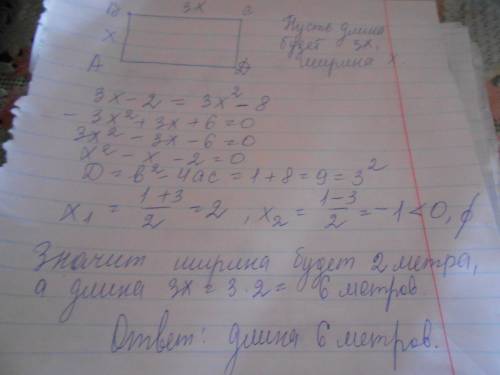 В 3х С
Пусть длина
будет 3х,
х ширина х.
А D
3х - 2 = 3х² - 8
- 3х² + 3х + 6 = 0
3х² - 3х - 6 = 0
х² - х - 2 = 0
D = в² - 4ас = 1 + 8 = 9 = 3²
х₁ = (1+3)/2 = 2, х₂ = (1-3)/2 = -1 < 0, ∅
Значит ширина будет 2 метра,
а длина 3х = 3·2 = 6 метров.
Ответ: длина 6 метров.